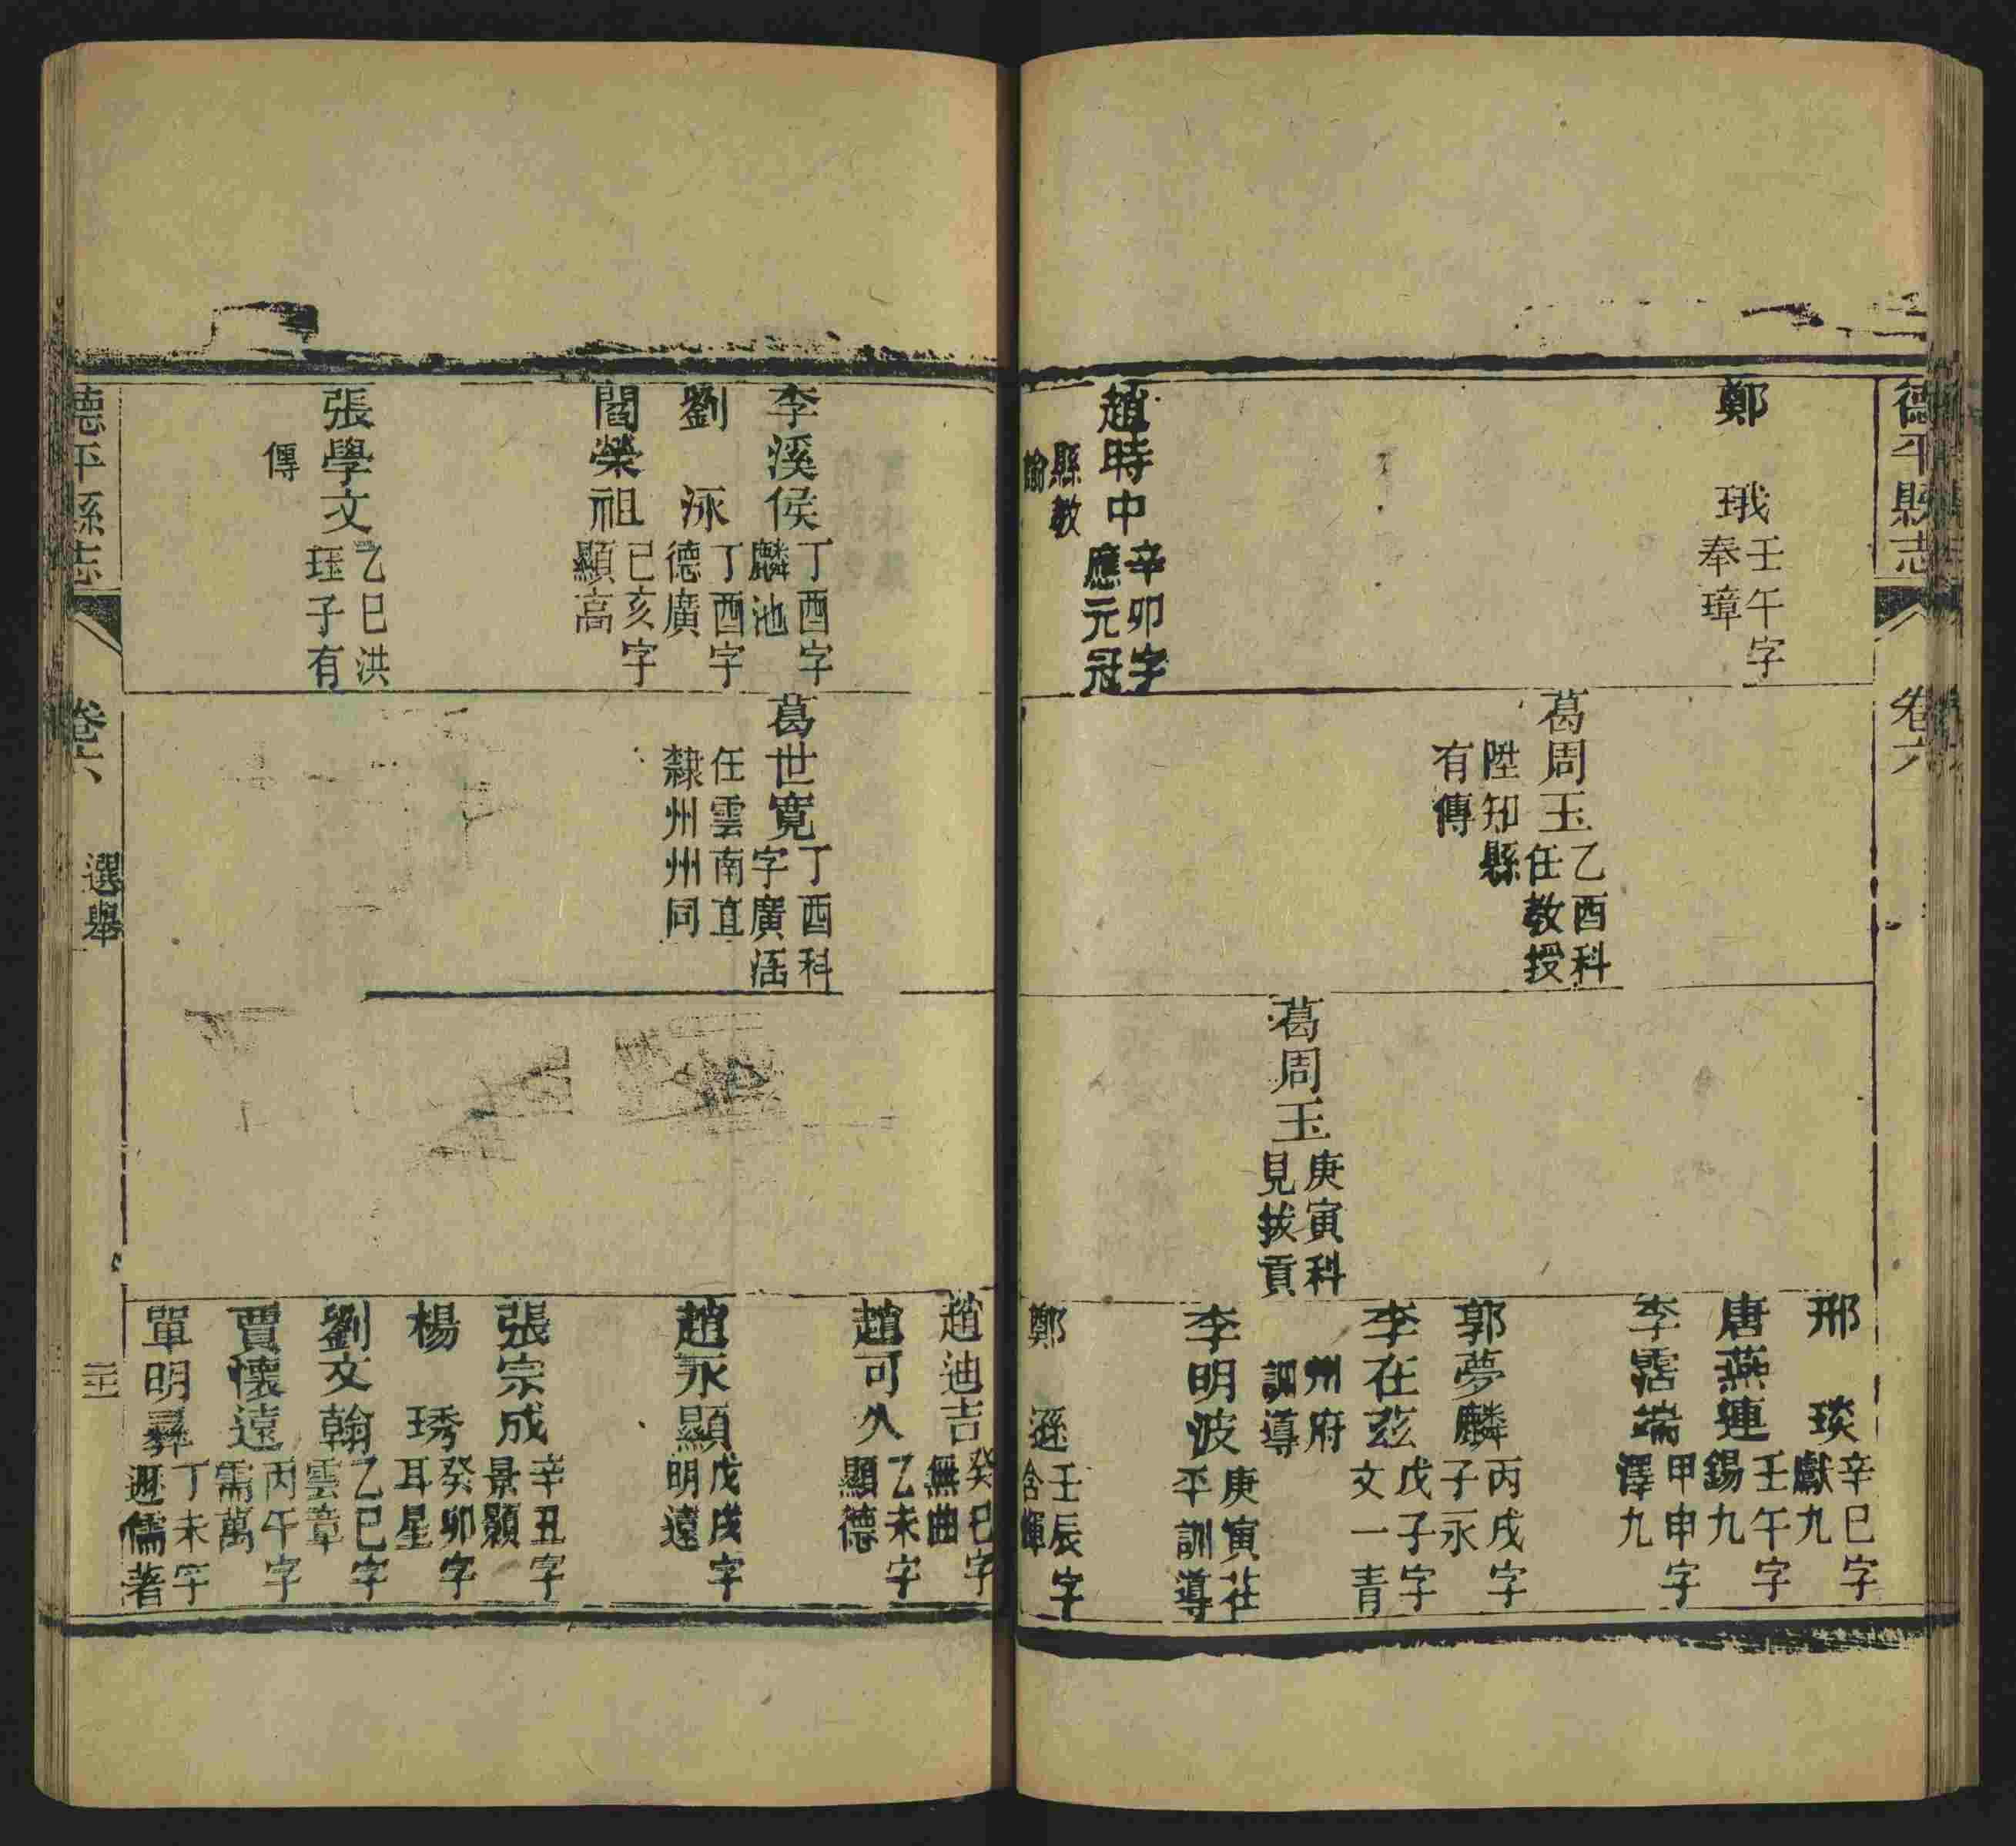 德平縣志
卷六
鄭 珴 壬午字
奉璋
趙時中 辛卯字
應元冠
縣教
諭
葛周玉 乙酉科
任教授
陞知縣
有傳
葛周玉 庚寅科
見拔貢
邢 琰 辛巳字
獻九
唐燕連 壬午字
錫九
李霑端 甲申字
澤九
郭夢麟 丙戌字
子永
李在茲 戊子字
文一青
州府
訓導
李明波 庚寅茌
平訓導
鄭 遜 壬辰字
含暉
李溪侯 丁酉字
麟池
劉 泳 丁酉字
德廣
閻榮祖 己亥字
顯高
張學文 乙巳洪
珏子有
傳
葛世寬 丁酉科
字廣涵
任雲南直
隸州州同
趙迪吉 癸巳字
無曲
趙可久 乙未字
顯德
趙永顯 戊戌字
明遠
張宗成 辛丑字
景顥
楊 琇 癸卯字
耳星
劉文翰 乙巳字
雲章
賈懷遠 丙午字
需萬
單明彝 丁未字
遜儒著
德平縣志
卷六
選舉